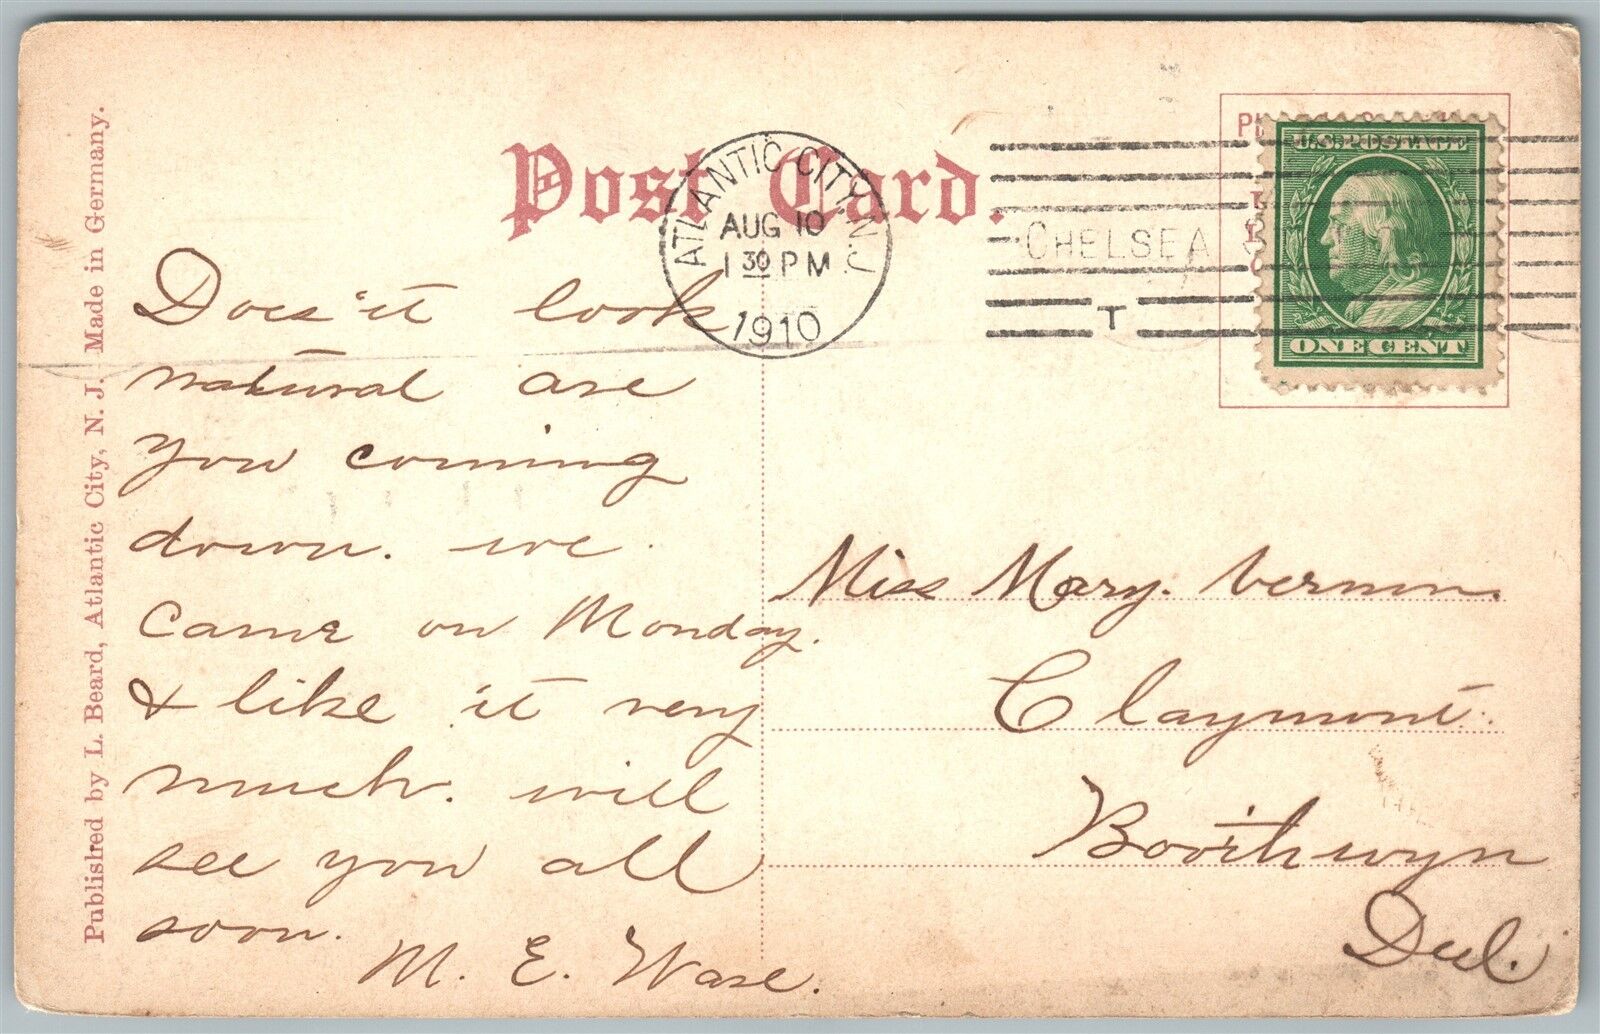 Published by L. Beard, Atlantic City, N. J. Made in Germany.
Post Card.
ATLANTIC CITY, N.J.
AUG 10
1 30 PM
1910
CHELSEA
T
U.S. POSTAGE
ONE CENT
Does it look
natural are
you coming
down. we
came on Monday.
& like it very
much. will
see you all
soon.
M. E. Wase.
Miss Mary. Vernon.
Claymont.
Boothwyn
Del.